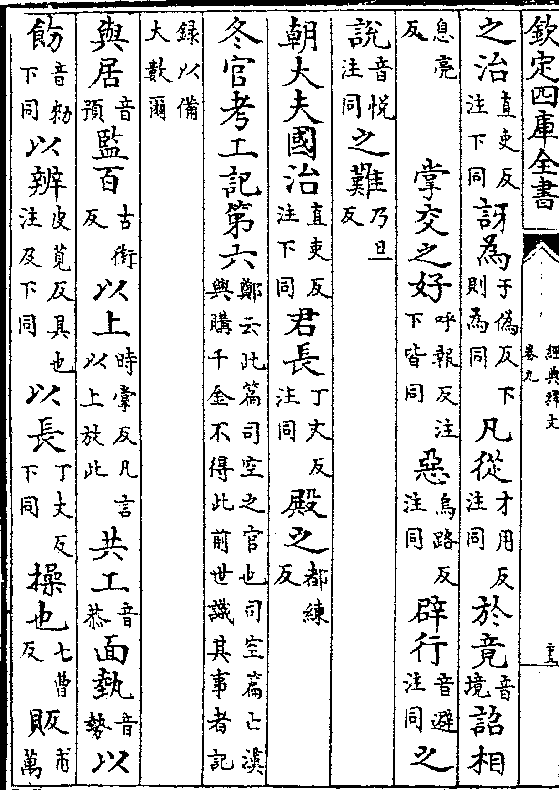 欽定四庫全書
經典釋文
卷九
之治直吏反注下同訝為于偽反下則為同凡從才用反注同於竟音境詔相
息亮反掌交之好呼報反注下皆同惡烏路反注同辟行音避注同之
說音悅注同之難乃旦反
朝大夫國治直吏反注下同君長丁丈反注同殿之都練反
冬官考工記第六鄭云此篇司空之官也司空篇亡漢興購千金不得此前世識其事者記
録以備大數爾
與居音預監百古銜反以上時掌反凡言以上放此共工音恭面埶音勢以
飭音勑下同以辨皮莧反具也注及下同以長丁丈反下同操也七曹反販甫萬